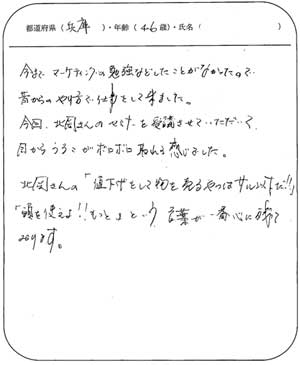 都道府県(兵庫)・年齢(46歳)・氏名( )
今まで マーケティングの勉強などしたことがなかったので
昔からのやり方で仕事をして来ました。
今回、北岡さんのセミナーを受講させていただいて
目からうろこがボロボロ取れる感じました。
北岡さんの「値下げをして物を売るやつはサル以下だ!!」
「頭を使えよ!!もっと」という言葉が一番心に残って
おります。